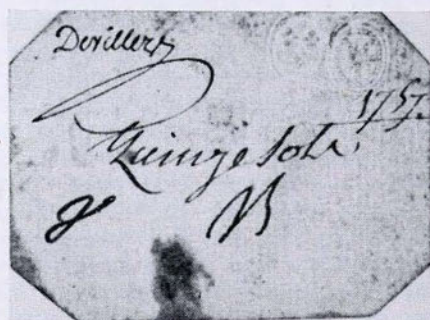 Devillers
1757.
Quinze Sols.